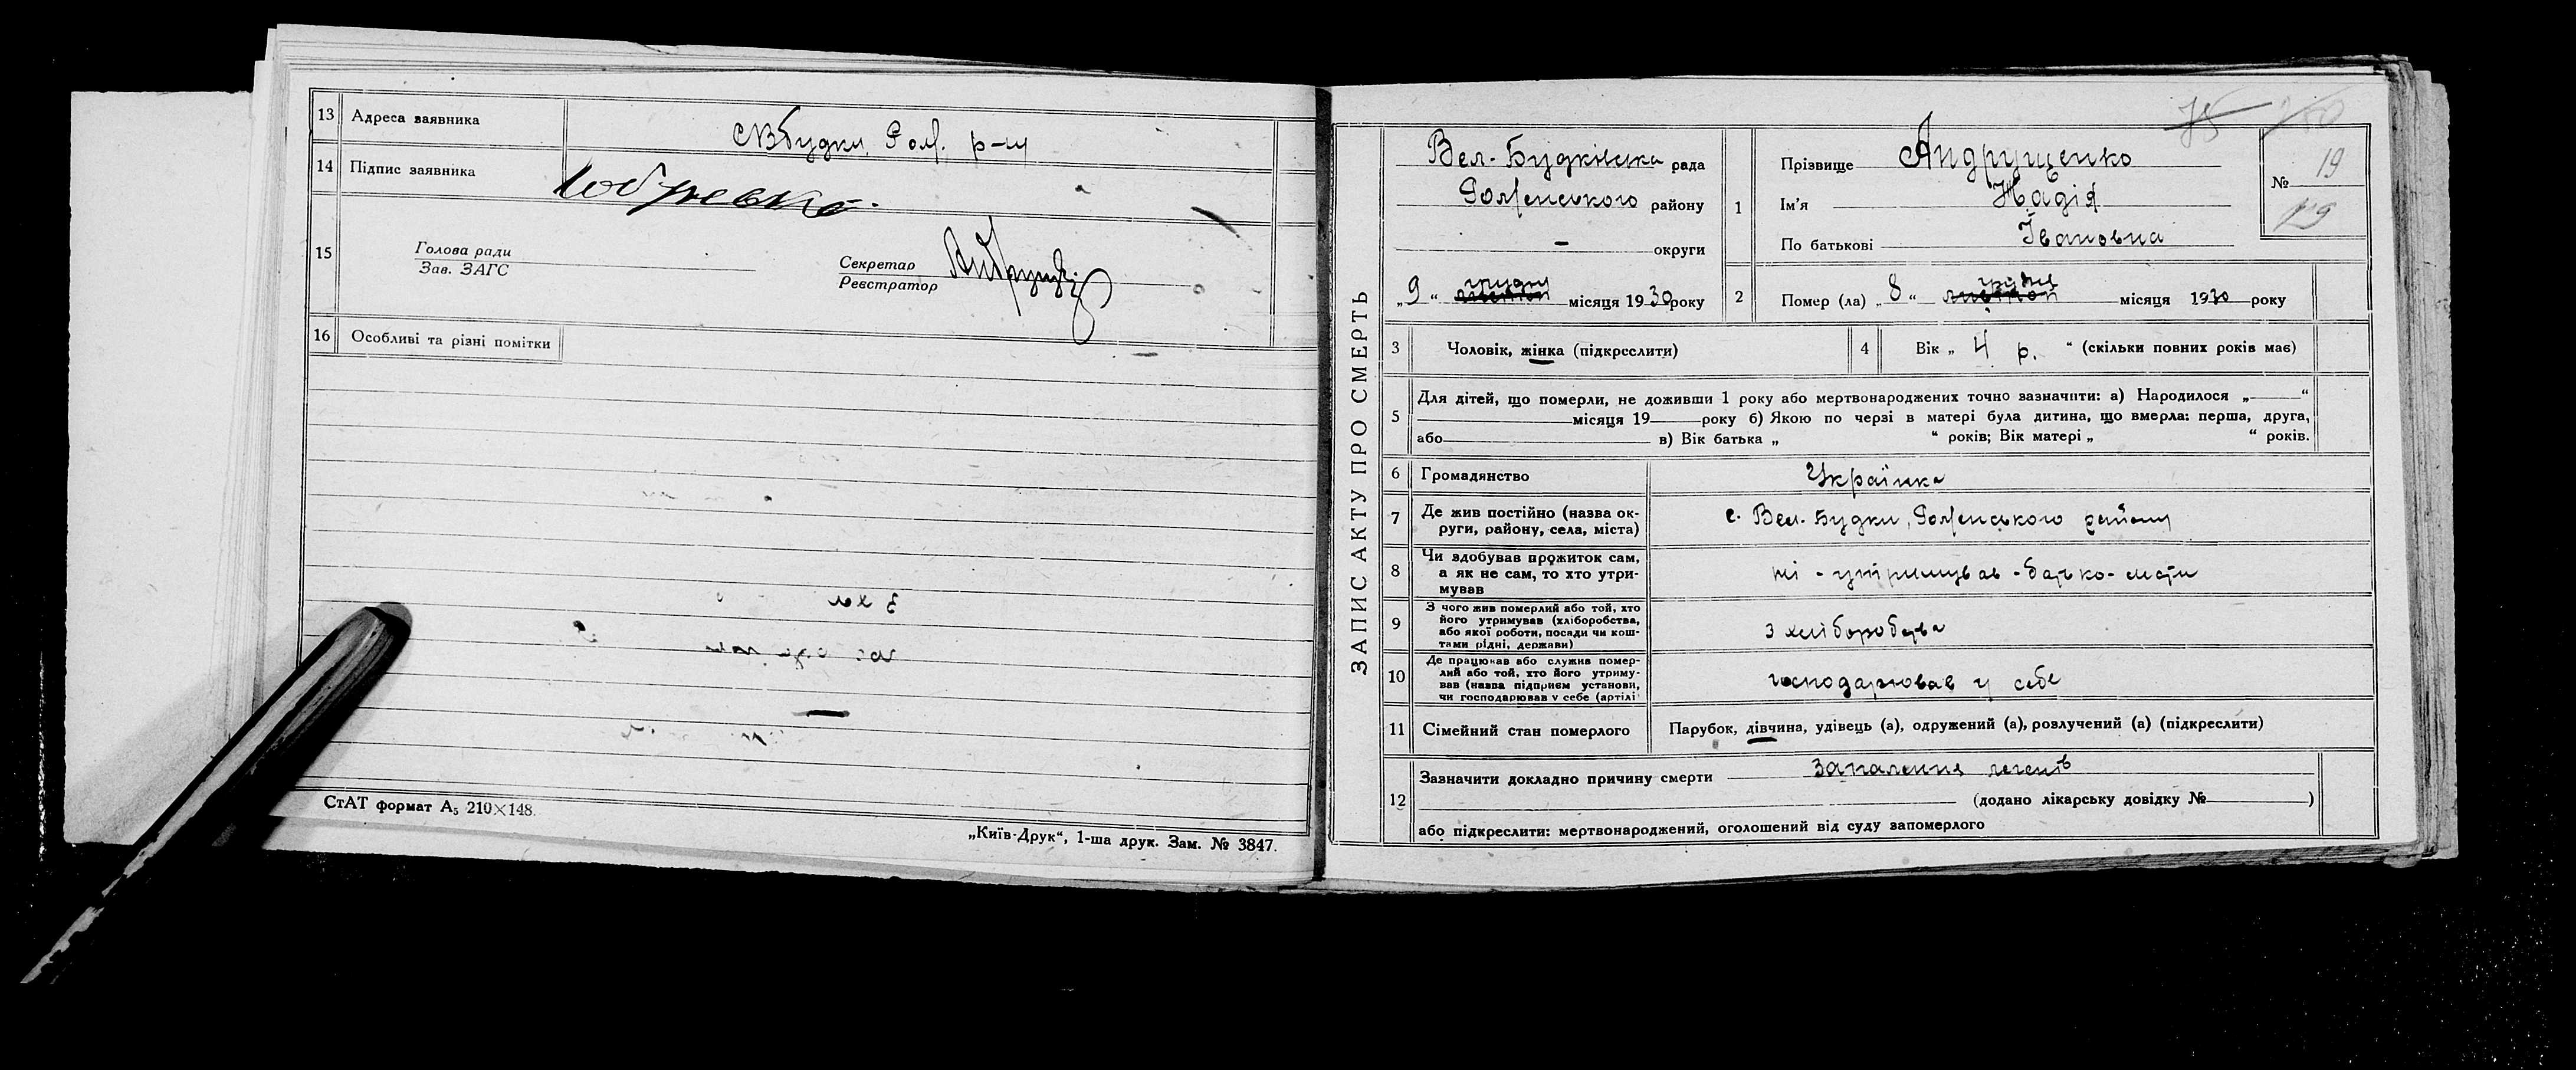 13 Адреса заявника СВбудки, Ром. р-ну
14 Підпис заявника
15 Голова ради
Зав. ЗАГС
Секретар
Реєстратор
16 Особливі та різні помітки
СтАТ формат А₅ 210×148.
„Київ-Друк“, 1-ша друк. Зам. № 3847.
ЗАПИС АКТУ ПРО СМЕРТЬ
75
Вел.-Будківська рада
Роменського району
- округи
„9“ грудня місяця 1930 року
1 Прізвище Андрущенко
Ім'я Надія
По батькові Івановна
№ 19
2 Помер (ла) „8“ грудня місяця 1930 року
3 Чоловік, жінка (підкреслити)
4 Вік „4 р.“ (скільки повних років має)
5 Для дітей, що померли, не доживши 1 року або мертвонароджених точно зазначити: а) Народилося „ “
місяця 19 року б) Якою по черзі в матері була дитина, що вмерла: перша, друга,
або в) Вік батька „ “ років; Вік матері „ “ років.
6 Громадянство Українка
7 Де жив постійно (назва ок-
руги, району, села, міста) с. Вел.-Будки, Роменського району
8 Чи здобував прожиток сам,
а як не сам, то хто утри-
мував ні - утримував - батько-мати
9 З чого жив померлий або той, хто
його утримував (хліборобства,
або якої роботи, посади чи кош-
тами рідні, держави) з хліборобства
10 Де працював або служив помер-
лий або той, хто його утриму-
вав (назва підприєм установи,
чи господарював у себе (артілі господарював у себе
11 Сімейний стан померлого Парубок, дівчина, удівець (а), одружений (а), розлучений (а) (підкреслити)
12 Зазначити докладно причину смерти Запалення легенів
(додано лікарську довідку № )
або підкреслити: мертвонароджений, оголошений від суду запомерлого